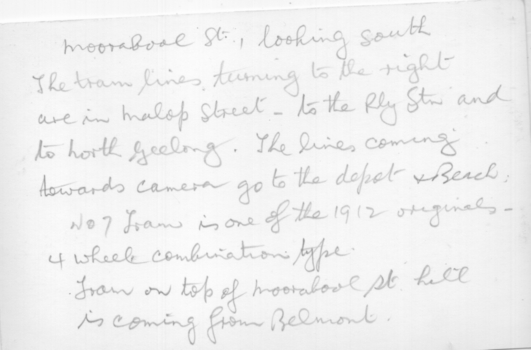 Moorabool St., looking south
The tram lines, turning to the right
are in Malop Street - to the Rly Stn and
to North Geelong. The lines coming
towards camera go to the depot & Beach.
No 7 Tram is one of the 1912 originals -
4 wheel combination type.
Tram on top of Moorabool St hill
is coming from Belmont.